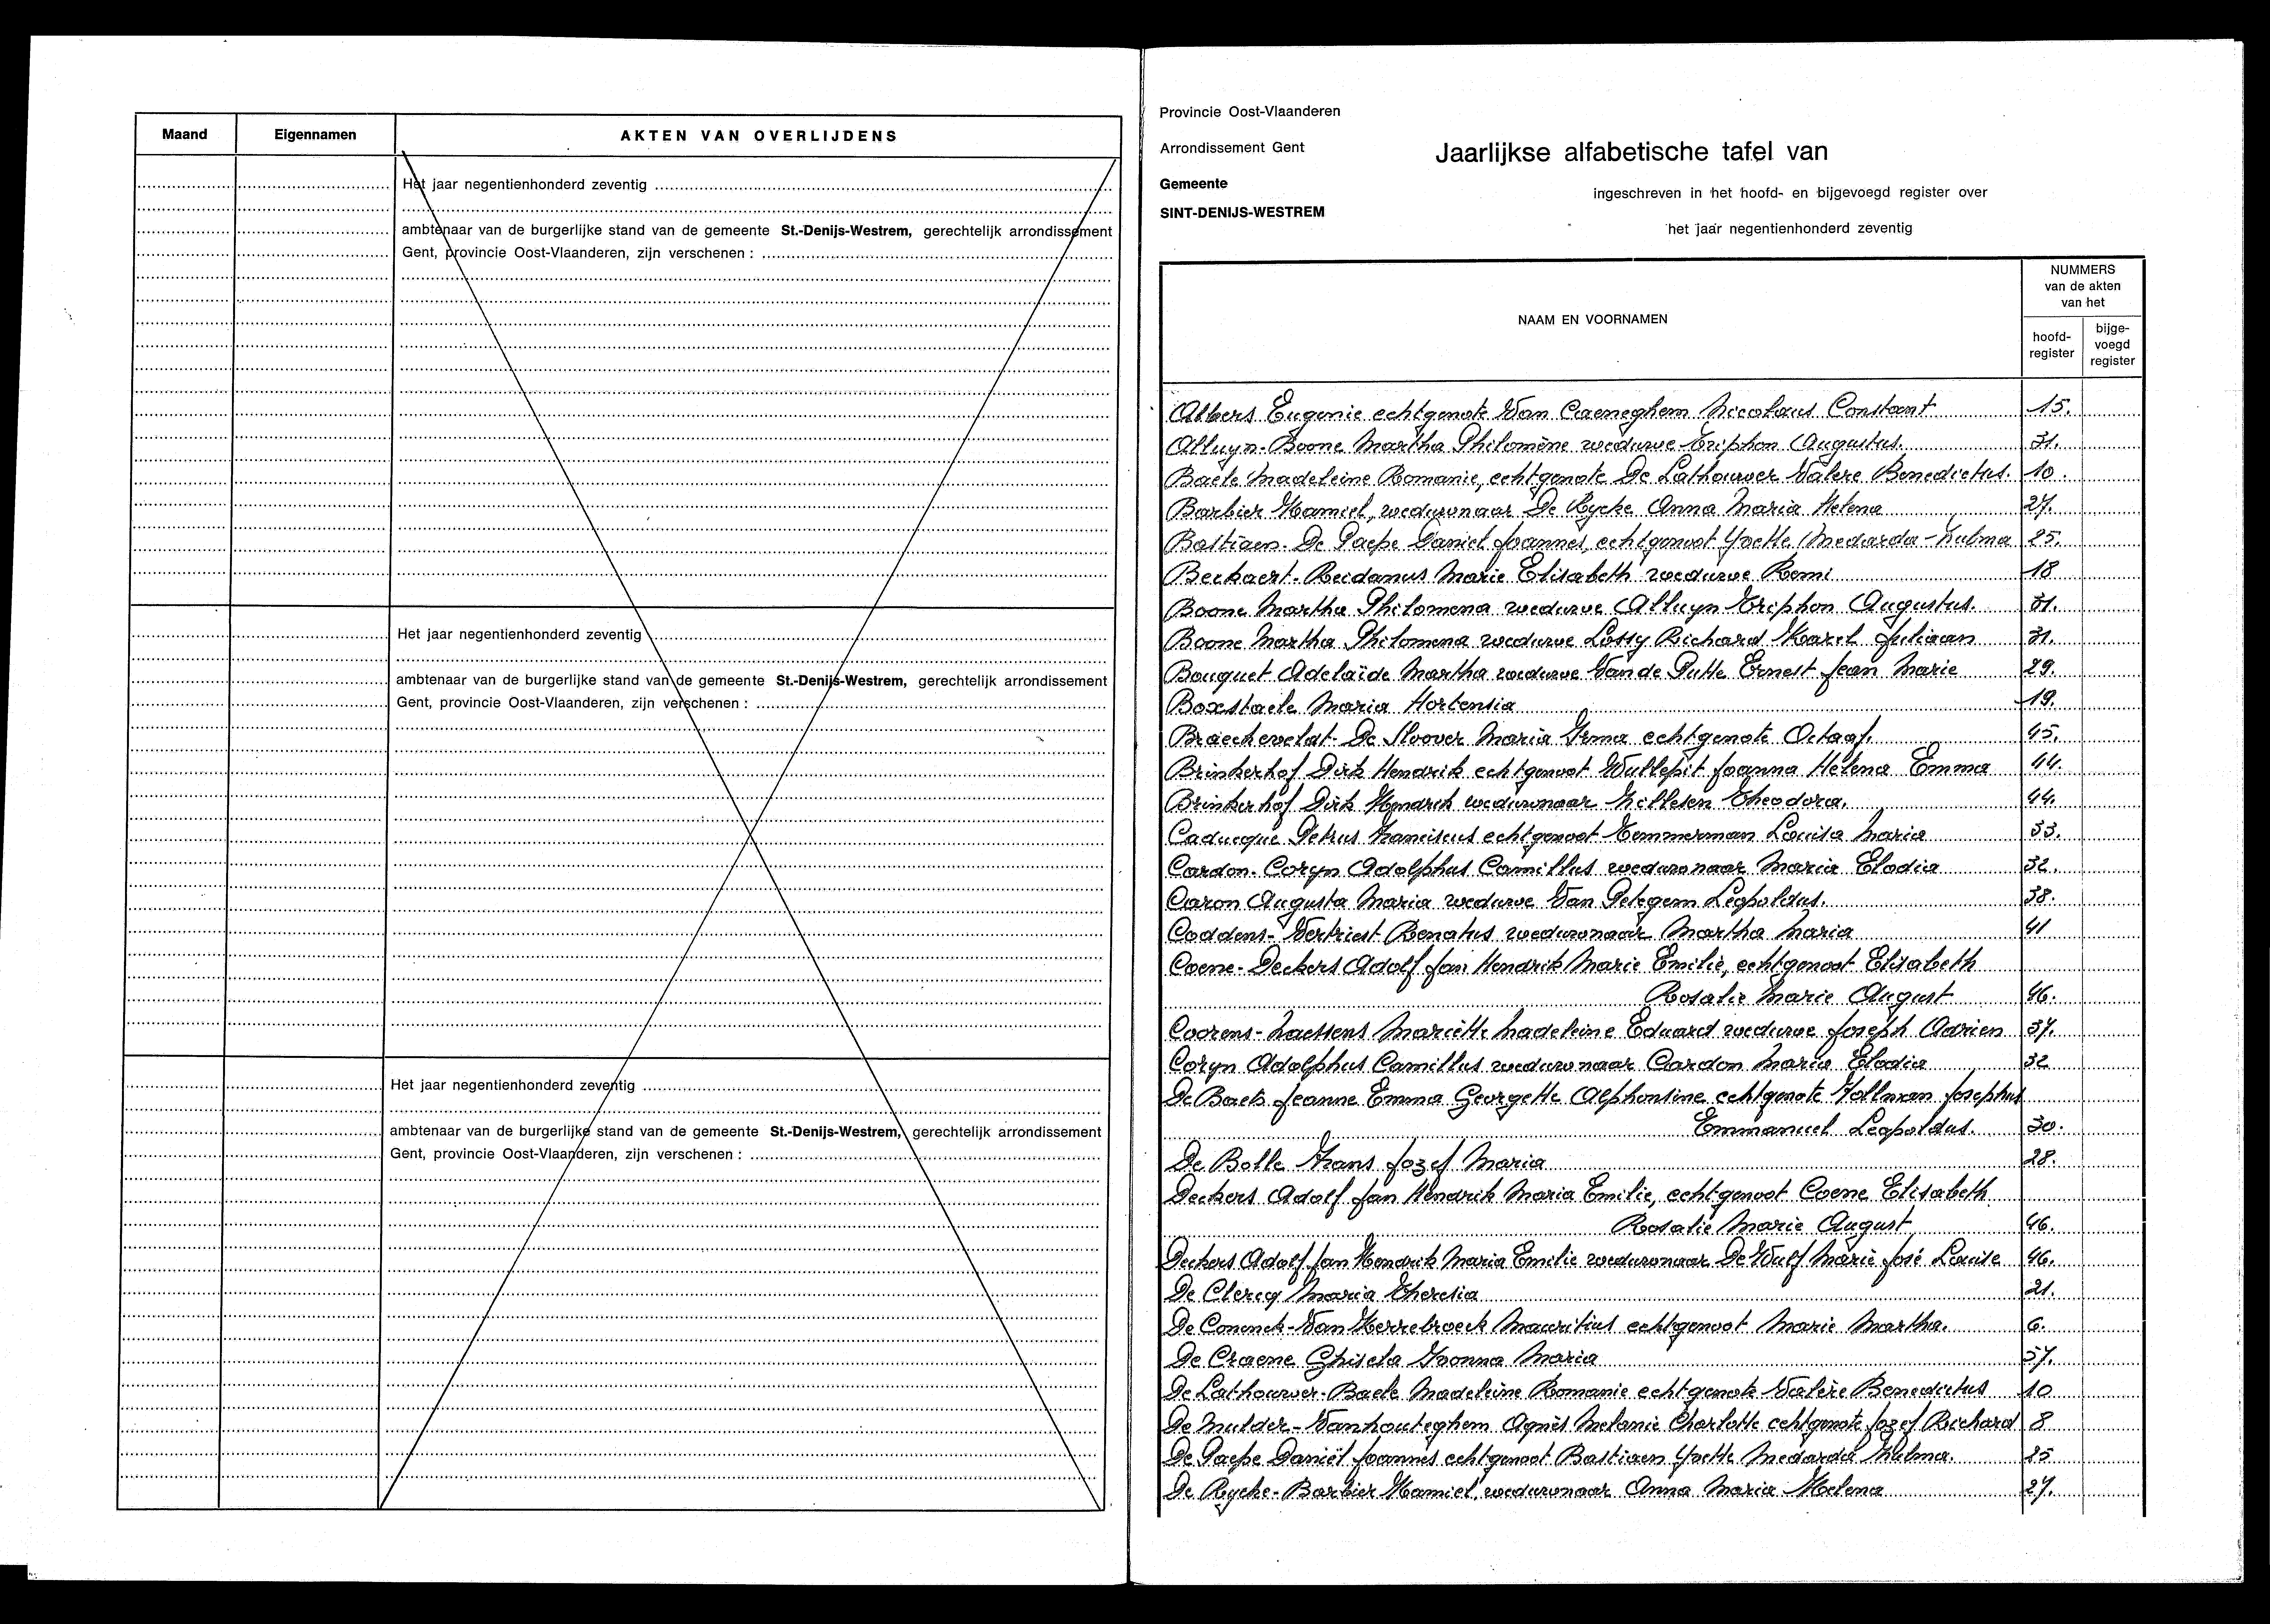 Maand Eigennamen AKTEN VAN OVERLIJDENS
Het jaar negentienhonderd zeventig
ambtenaar van de burgerlijke stand van de gemeente St.-Denijs-Westrem, gerechtelijk arrondissement
Gent, provincie Oost-Vlaanderen, zijn verschenen :
Het jaar negentienhonderd zeventig
ambtenaar van de burgerlijke stand van de gemeente St.-Denijs-Westrem, gerechtelijk arrondissement
Gent, provincie Oost-Vlaanderen, zijn verschenen :
Het jaar negentienhonderd zeventig
ambtenaar van de burgerlijke stand van de gemeente St.-Denijs-Westrem, gerechtelijk arrondissement
Gent, provincie Oost-Vlaanderen, zijn verschenen :
Provincie Oost-Vlaanderen
Arrondissement Gent
Gemeente
SINT-DENIJS-WESTREM
Jaarlijkse alfabetische tafel van
ingeschreven in het hoofd- en bijgevoegd register over
het jaar negentienhonderd zeventig
NAAM EN VOORNAMEN
NUMMERS
van de akten
van het
hoofd-
register
bijge-
voegd
register
Albers Eugenie echtgenote Van Caeneghem Nicolaus Constant 15.
Alluyn-Boone Martha Philomène weduwe Triphon Augustus. 31.
Baele Madeleine Romanie, echtgenote De Lathouwer Valere Benedictus. 10.
Barbier Kamiel, weduwnaar De Rycke Anna Maria Helena 27.
Bastiaen-De Paepe Daniel Joannes, echtgenoot Yvette Medarda-Zulma 25.
Beckaert-Reidanus Marie Elisabeth weduwe Remi 18
Boone Martha Philomena weduwe Alluyn Triphon Augustus. 31.
Boone Martha Philomena weduwe Lossy Richard Karel Juliaan 31.
Bouquet Adelaïde Martha weduwe Van de Putte Ernest Jean Marie 29.
Boxstaele Maria Hortensia 19.
Braeckevelat-De Sloover Maria Irma echtgenote Octaaf. 45.
Brinkerhof Dirk Hendrik echtgenoot Wullepit Joanna Helena Emma 44.
Brinkerhof Dirk Hendrik weduwnaar Hillesen Theodora. 44.
Caducque Petrus Franciscus echtgenoot Temmerman Louisa Maria 33.
Cardon-Coryn Adolphus Camillus weduwnaar Maria Elodia 32.
Caron Augusta Maria weduwe Van Petegem Leopoldus. 38.
Coddens-Vertriest Renatus weduwnaar Martha Maria 41
Coene-Deckers Adolf Jan Hendrik Marie Emilie, echtgenoot Elisabeth
Rosalie Marie August 46.
Coorens-Naessens Mariette Madeleine Eduard weduwe Joseph Adrien 37.
Coryn Adolphus Camillus weduwnaar Cardon Maria Elodia 32
De Baets Jeanne Emma Georgette Alphonsine echtgenote Hollman Josephus
Emmanuel Leopoldus. 30.
De Bolle Frans Jozef Maria 28.
Deckers Adolf Jan Hendrik Maria Emilie, echtgenoot Coene Elisabeth
Rosalie Marie August 46.
Deckers Adolf Jan Hendrik Maria Emilie weduwnaar De Wulf Marie José Louise 46.
De Clercq Maria Theresia 21.
De Coninck-Van Herrebroeck Mauritius echtgenoot Marie Martha. 6.
De Craene Ghisela Ivonna Maria 57.
De Lathouwer-Baele Madeleine Romanie echtgenote Valère Benedictus 10
De Mulder-Vanhouteghem Agnès Melanie Charlotte echtgenote Jozef Richard 8
De Paepe Daniël Joannes echtgenoot Bastiaen Yvette Medarda Zulma. 25
De Rycke-Barbier Kamiel, weduwnaar Anna Maria Helena 27.